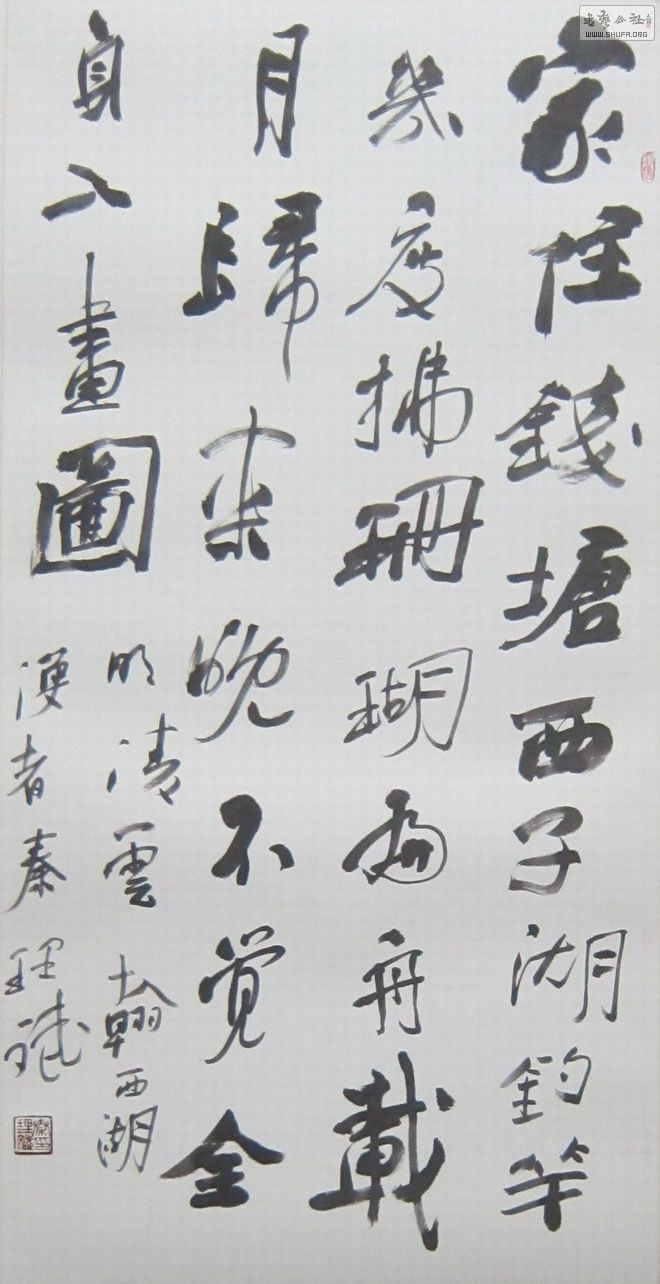 家住錢塘西子湖釣竿
幾度拂珊瑚扁舟載
月歸來晚不覺全
身入畫圖
明清雲翰西湖
漫者秦理斌
書藝公社
WWW.SHUFA.ORG